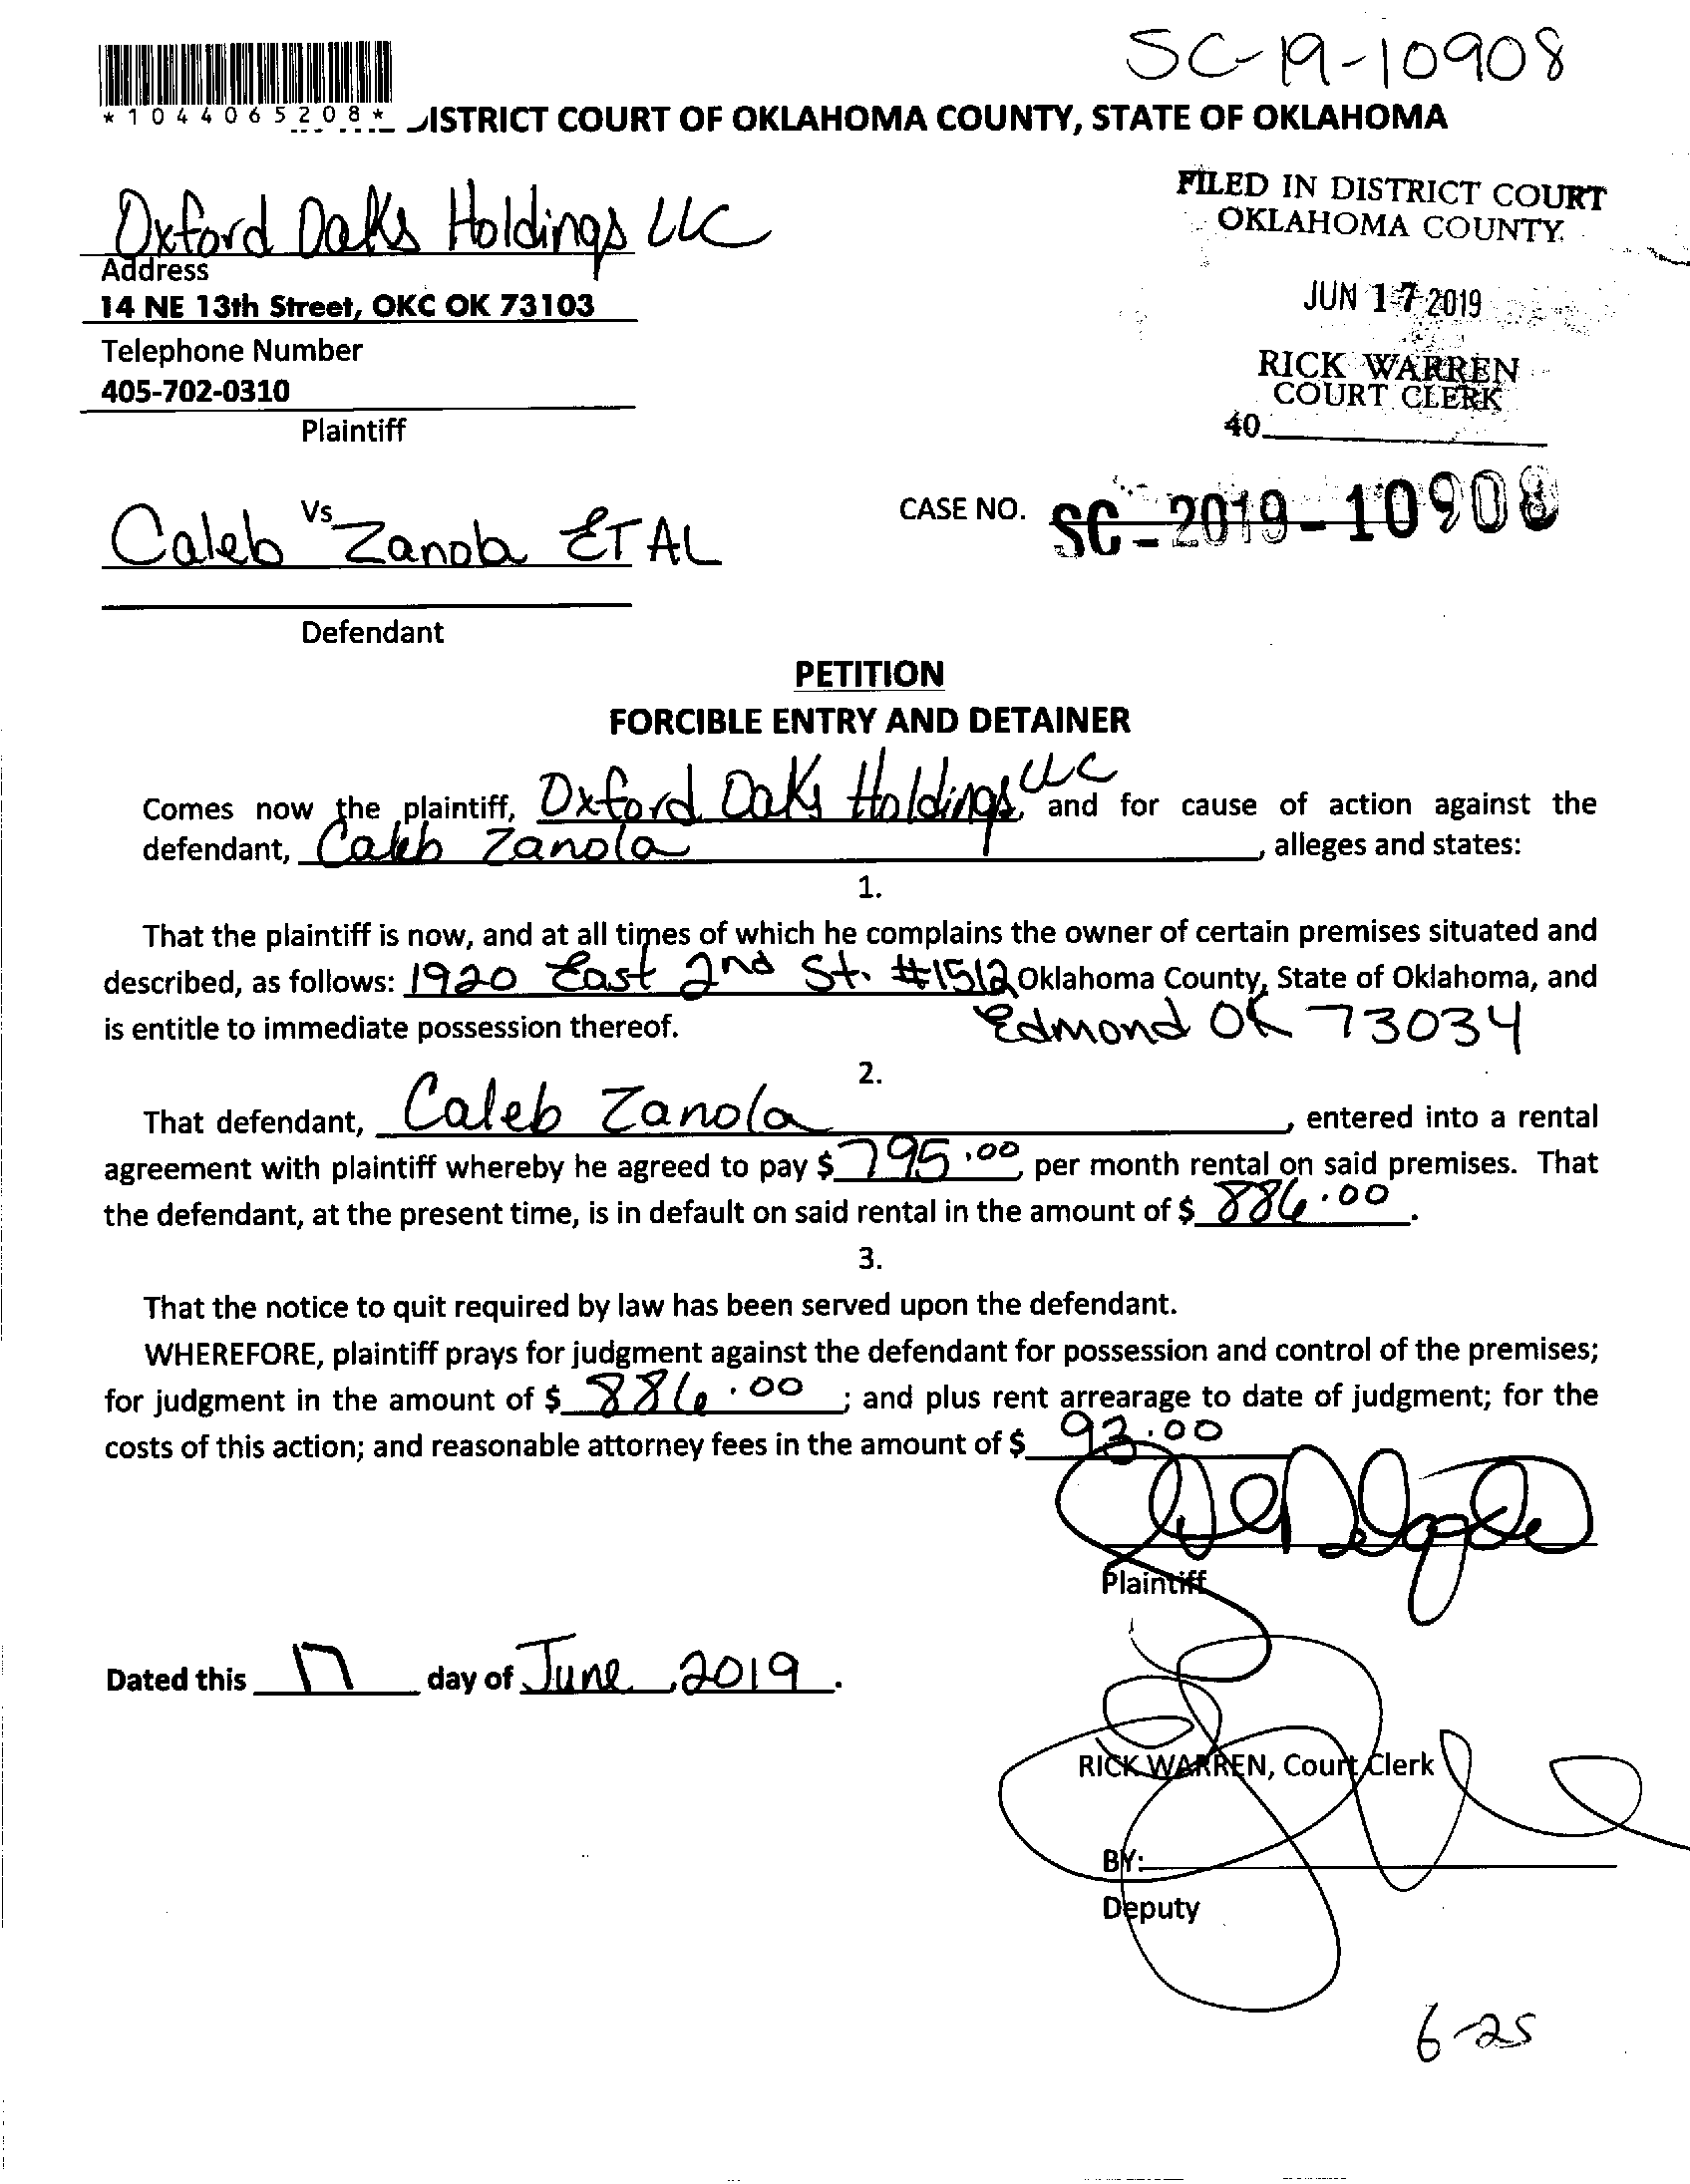 SC-19-10908
*1044065208*
DISTRICT COURT OF OKLAHOMA COUNTY, STATE OF OKLAHOMA
FILED IN DISTRICT COURT
OKLAHOMA COUNTY.
Oxford Oaks Holdings LLC
Address
14 NE 13th Street, OKC OK 73103
JUN 17 2019
Telephone Number
405-702-0310
RICK WARREN
COURT CLERK
40
Plaintiff
Vs
Caleb Zanola ET AL
CASE NO. SC-2019-10908
Defendant
PETITION
FORCIBLE ENTRY AND DETAINER
Comes now the plaintiff, Oxford Oaks Holdings, LLC and for cause of action against the
defendant, Caleb Zanola, alleges and states:
1.
That the plaintiff is now, and at all times of which he complains the owner of certain premises situated and
described, as follows: 1920 East 2nd St. #1512 Oklahoma County, State of Oklahoma, and
is entitle to immediate possession thereof. Edmond OK 73034
2.
That defendant, Caleb Zanola, entered into a rental
agreement with plaintiff whereby he agreed to pay $ 795.00 per month rental on said premises. That
the defendant, at the present time, is in default on said rental in the amount of $ 886.00.
3.
That the notice to quit required by law has been served upon the defendant.
WHEREFORE, plaintiff prays for judgment against the defendant for possession and control of the premises;
for judgment in the amount of $ 886.00; and plus rent arrearage to date of judgment; for the
costs of this action; and reasonable attorney fees in the amount of $ 93.00
Plaintiff
Dated this 17 day of June, 2019.
RICK WARREN, Court Clerk
BY:
Deputy
6-25